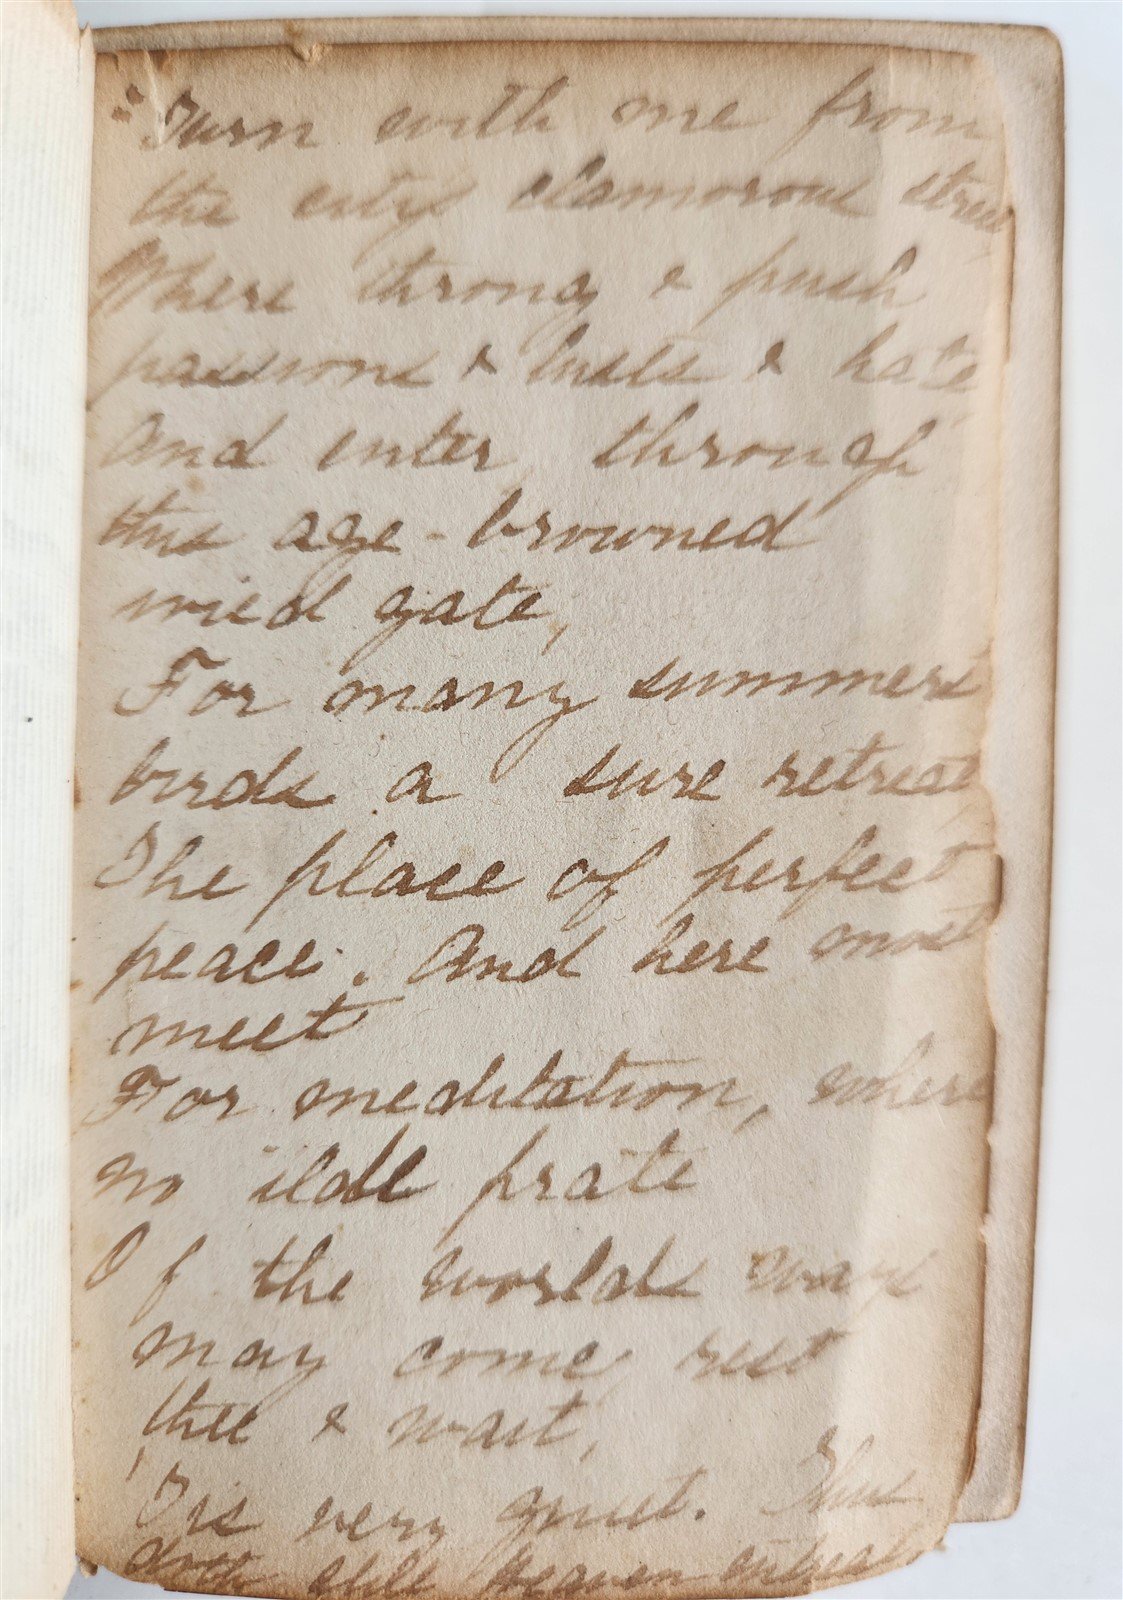 "Turn with me from
the citys clamorous street
Where throng & push
passions & lusts & hate
And enter, through
this age-browned
wied gate,
For many summers
birds a sure retreat,
The place of perfect
peace. And here most
meet
For meditation, where
no idle prate
Of the worlds ways
may come, rest
thee & wait,
'Tis very quiet. Thus
doth still Heaven entreat